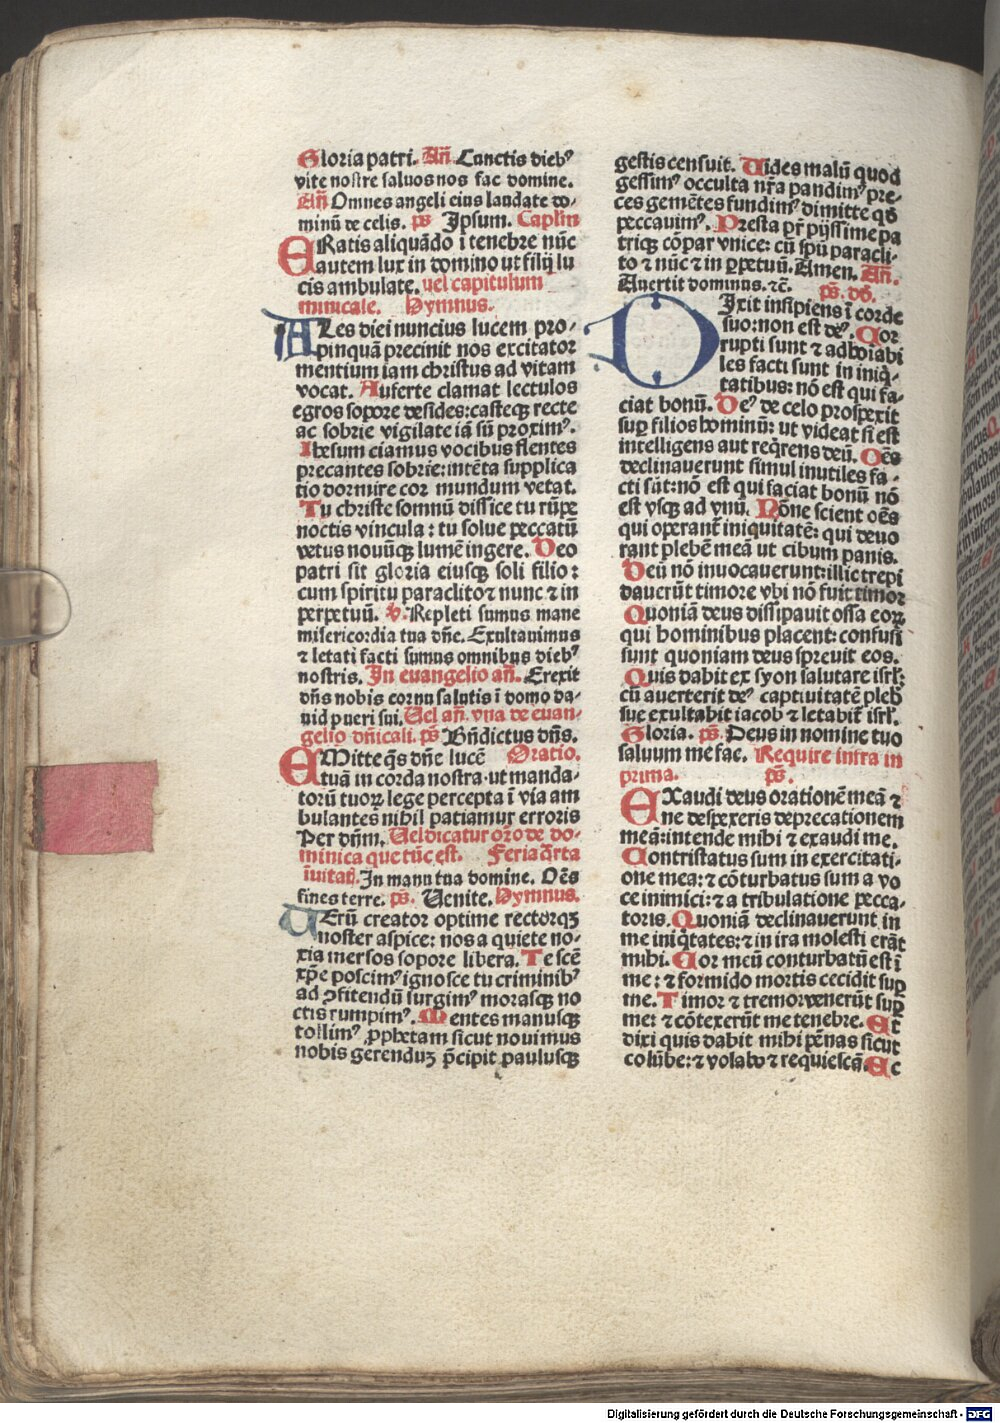 Gloria patri. Añ. Cunctis dieb⁹
vite nostre saluos nos fac domine.
Añ Omnes angeli eius laudate do-
minū de celis. ps Ipsum. Caplm
ERatis aliquādo ī tenebre nūc
autem lux in domino ut filij lu
cis ambulate. vel capitulum
minicale. Hymnus.
ALes diei nuncius lucem pro-
pinquā precinit nos excitator
mentium iam christus ad vitam
vocat. Auferte clamat lectulos
egros sopore desides: casteqꝫ recte
ac sobrie vigilate iā sū proxim⁹.
Ihesum ciamus vocibus flentes
precantes sobrie: intēta supplica
tio dormire cor mundum vetat.
Tu christe somnū dissice tu rūpe
noctis vincula: tu solue peccatū
vetus nouūqꝫ lumē ingere. Deo
patri sit gloria eiusqꝫ soli filio:
cum spiritu paraclito ⁊ nunc ⁊ in
perpetuū. v̄. Repleti sumus mane
misericordia tua dñe. Exultauimus
⁊ letati facti sumus omnibus dieb⁹
nostris. In euangelio añ. Erexit
dñs nobis cornu salutis ī domo da-
uid pueri sui. Uel añ. vna de euan-
gelio dñicali. ps Bñdictus dñs.
EMitte qs dñe lucē Oratio.
tuā in corda nostra ut manda-
torū tuoꝝ lege percepta ī via am
bulantes nihil patiamur erroris
Per dñm. Uel dicatur oro de do-
minica que tūc est. Feria qrta
īuitat. In manu tua domine. Oēs
fines terre. ps. Uenite. Hymnus.
UErū creator optime rectorqꝫ
noster aspice: nos a quiete no-
xia mersos sopore libera. Te scē
xpe poscim⁹ ignosce tu criminib⁹
ad ꝯfitendū surgim⁹ morasqꝫ no
ctis rumpim⁹. Mentes manusqꝫ
tollim⁹ ꝓphetam sicut nouimus
nobis gerenduꝫ p̄cipit paulusqꝫ
gestis censuit. Uides malū quod
gessim⁹ occulta nr̄a pandim⁹ pre-
ces gemētes fundim⁹ dimitte qd
peccauim⁹. Presta pr̄ pijssime pa
triqꝫ cōpar vnice: cū spū paracli-
to ⁊ nūc ⁊ in ꝑpetuū. Amen. Añ.
Auertit dominus. ⁊c̄. ps. dd.
DIxit insipiens ī corde
suo: non est de⁹. Cor
rupti sunt ⁊ adhoīabi
les facti sunt in iniq-
tatibus: nō est qui fa-
ciat bonū. De⁹ de celo prospexit
suꝑ filios hominū: ut videat si est
intelligens aut reqrens deū. Oēs
declinauerunt simul inutiles fa-
cti sūt: nō est qui faciat bonū nō
est vsqꝫ ad vnū. Nōne scient oēs
qui operant iniquitatē: qui deuo
rant plebē meā ut cibum panis.
Deū nō inuocauerunt: illic trepi
dauerūt timore vbi nō fuit timor
Quoniā deus dissipauit ossa eoꝝ
qui hominibus placent: confusi
sunt quoniam deus spreuit eos.
Quis dabit ex syon salutare isrl:
cū auerterit de⁹ captiuitatē pleb
sue exultabit iacob ⁊ letabit isrl.
Gloria. ps. Deus in nomine tuo
saluum me fac. Require infra in
prima. ps.
EXaudi deus orationē meā ⁊
ne despexeris deprecationem
meā: intende mihi ⁊ exaudi me.
Contristatus sum in exercitati-
one mea: ⁊ cōturbatus sum a vo
ce inimici: ⁊ a tribulatione pecca-
toris. Quoniā declinauerunt in
me iniqtates: ⁊ in ira molesti erāt
mihi. Cor meū conturbatū est ī
me: ⁊ formido mortis cecidit suꝑ
me. Timor ⁊ tremor venerūt suꝑ
me: ⁊ cōtexerūt me tenebre. Et
dixi quis dabit mihi pēnas sicut
colūbe: ⁊ volabo ⁊ requiescā. Ec
Digitalisierung gefördert durch die Deutsche Forschungsgemeinschaft - DFG